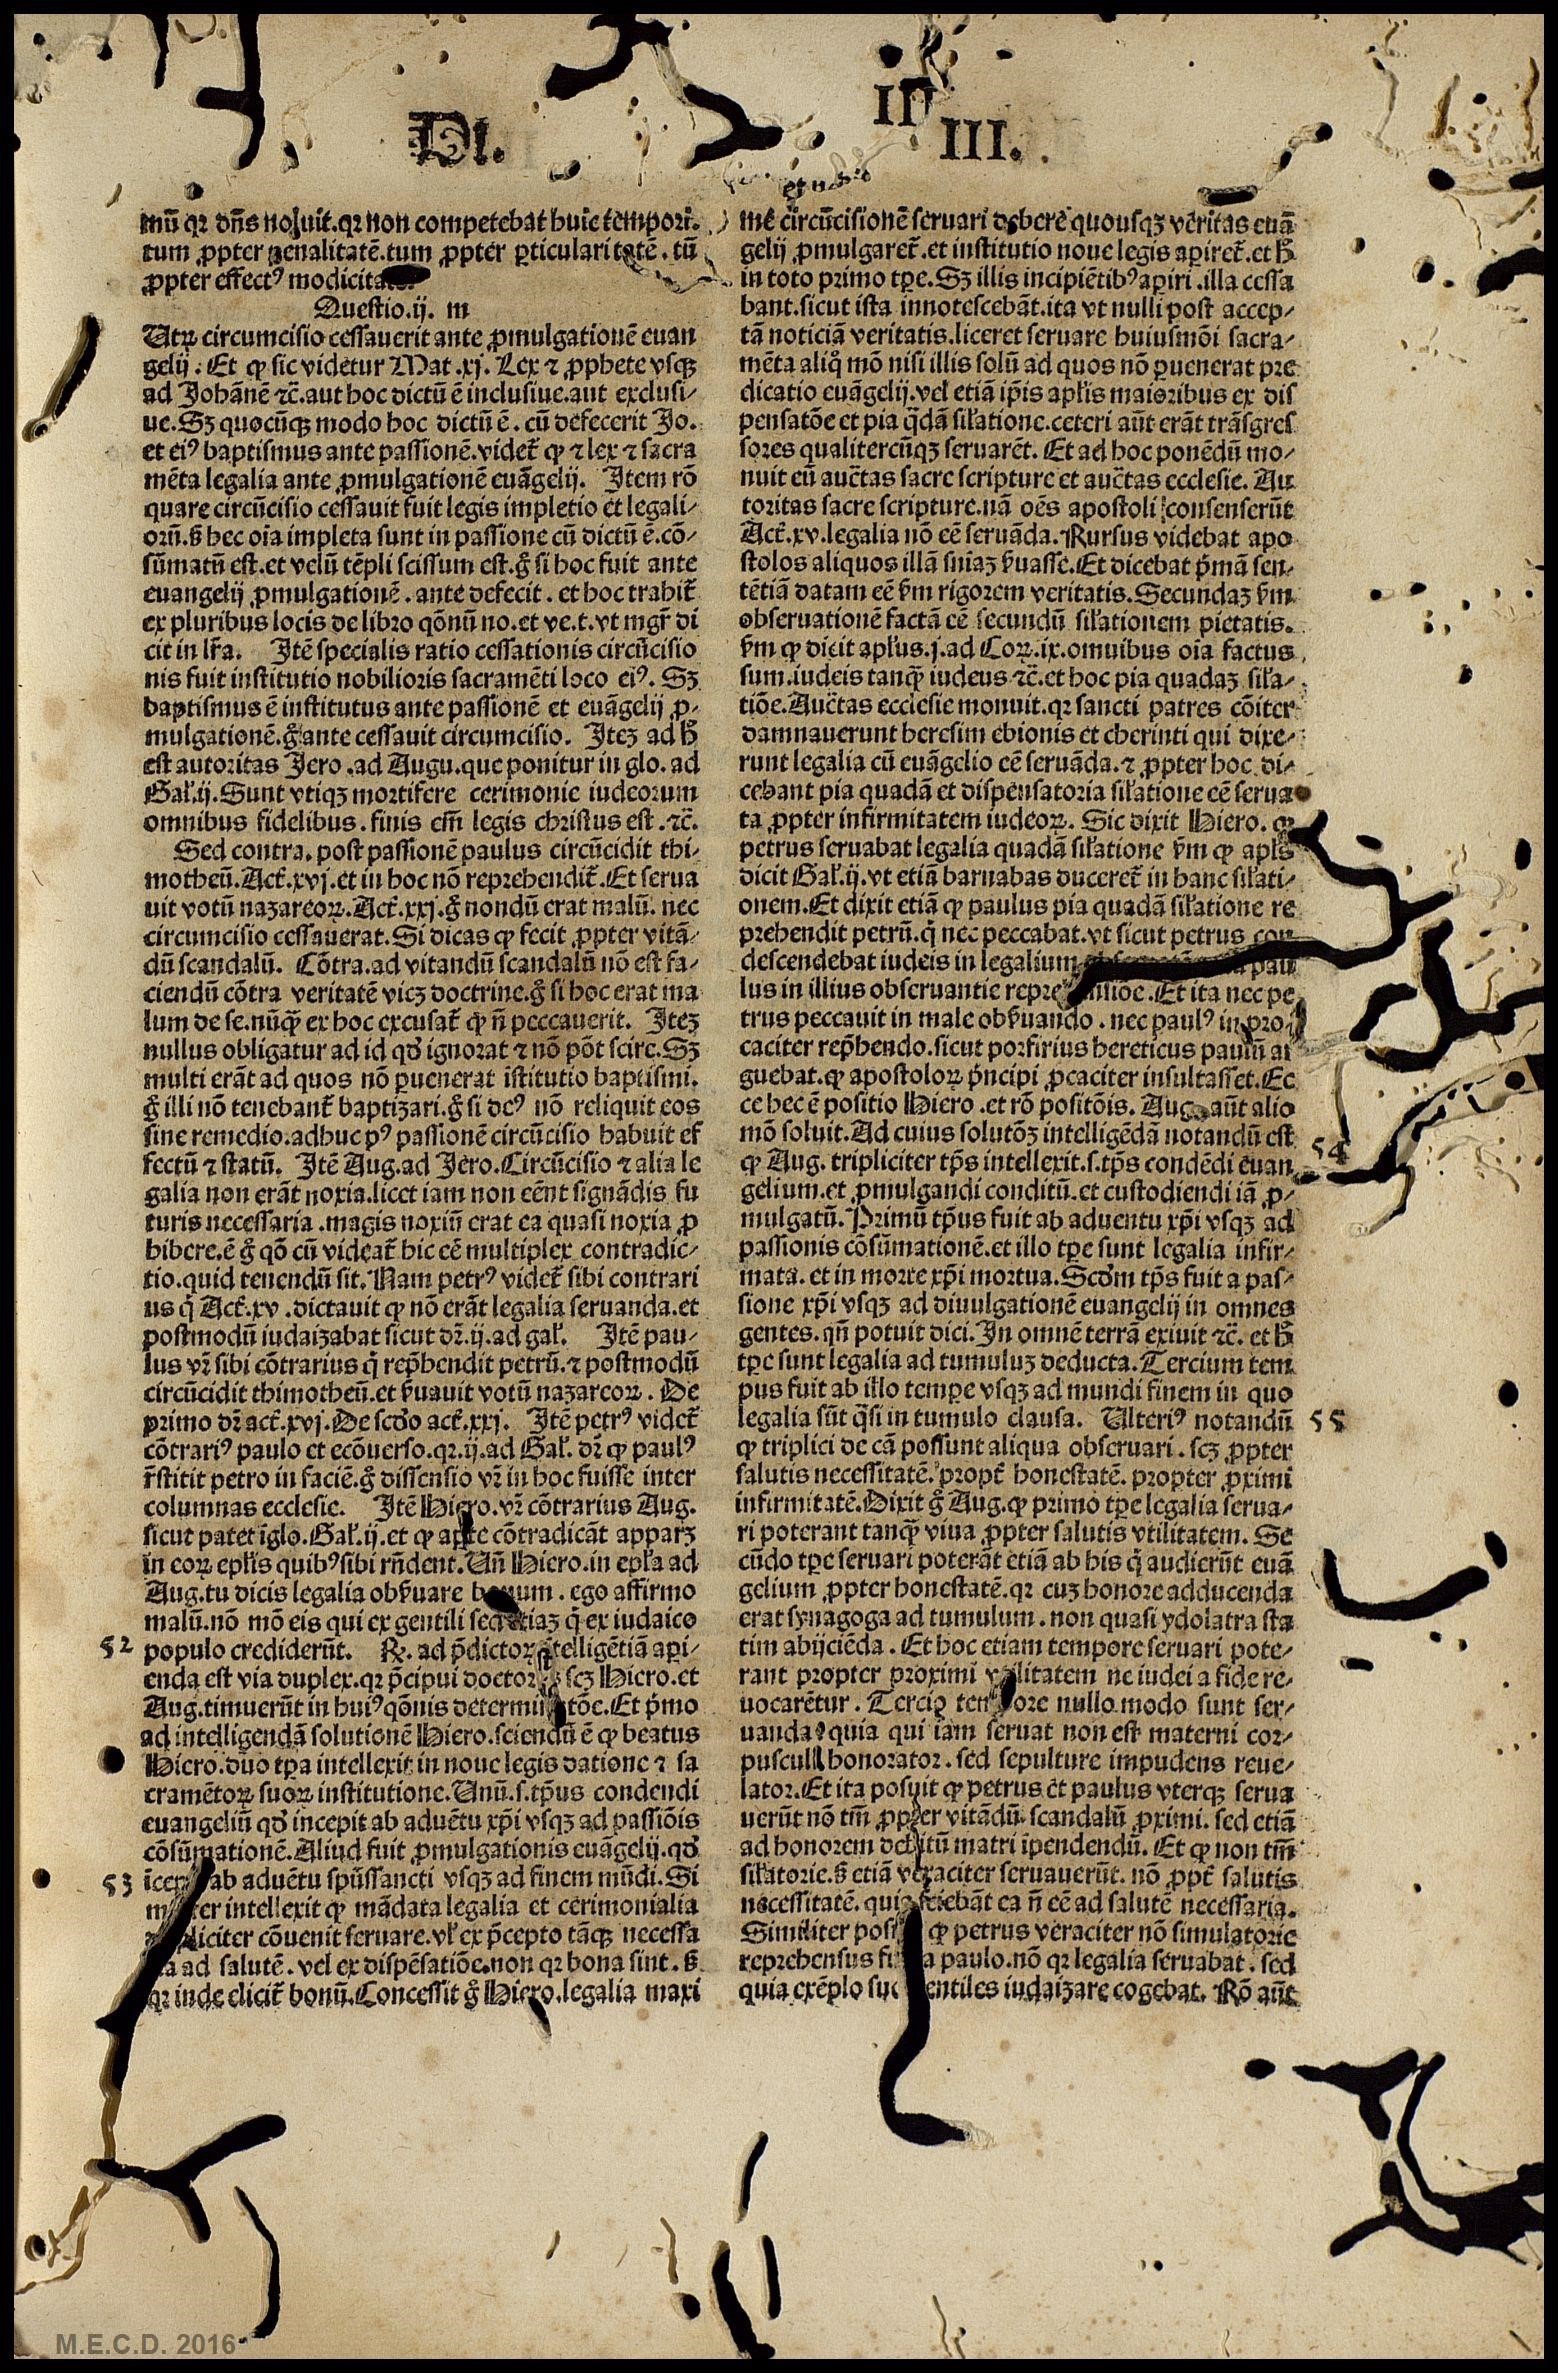 DI. III III.
mū qꝛ dn̄s noluit.qꝛ non competebat huic tempori.
tum ꝓpter penalitatē.tum ꝓpter ꝑticularitatē. tū
ꝓpter effectꝰ modicita
Questio.ij. m
Utꝝ circumcisio cessauerit ante ꝓmulgationē euan
gelij. Et ꝙ sic videtur Mat.xj. Lex ⁊ ꝓphete vsqꝫ
ad Johānē ⁊c̄.aut hoc dictū ē inclusiue.aut exclusi⸗
ue.Sꝫ quocūqꝫ modo hoc dictū ē. cū defecerit Jo.
et eiꝰ baptismus ante passionē.videt̄ ꝙ ⁊ lex ⁊ sacra
mēta legalia ante ꝓmulgationē euāgelij. Item rō
quare circūcisio cessauit fuit legis impletio et legali⸗
orū.s̄ hec oīa impleta sunt in passione cū dictū ē.cō⸗
sūmatū est.et velū tēpli scissum est.gͦ si hoc fuit ante
euangelij ꝓmulgationē. ante defecit. et hoc trahit̄
ex pluribus locis de libro qōnū no.et ve.t.vt mgr̄ di
cit in lr̄a. Itē specialis ratio cessationis circūcisio
nis fuit institutio nobilioris sacramēti loco eiꝰ. Sꝫ
baptismus ē institutus ante passionē et euāgelij ꝓ⸗
mulgationē.gͦ ante cessauit circumcisio. Iteꝫ ad hͦ
est autoritas Jero.ad Augu.que ponitur in glo. ad
Gal̄.ij.Sunt vtiqꝫ mortifere cerimonie iudeorum
omnibus fidelibus. finis em̄ legis christus est. ⁊c̄.
Sed contra. post passionē paulus circūcidit thi⸗
motheū.Act̄.xvj.et in hoc nō reprehendit̄.Et serua
uit votū nazareoꝝ.Act̄.xxj.gͦ nondū erat malū. nec
circumcisio cessauerat.Si dicas ꝙ fecit ꝓpter vitā⸗
dū scandalū. Cōtra.ad vitandū scandalū nō est fa⸗
ciendū cōtra veritatē vicꝫ doctrine.gͦ si hoc erat ma
lum de se.nūqͣꝫ ex hoc excusat̄ ꝙ n̄ peccauerit. Iteꝫ
nullus obligatur ad id qd̄ ignorat ⁊ nō pōt scire.Sꝫ
multi erāt ad quos nō ꝑuenerat īstitutio baptismi.
gͦ illi nō tenebant̄ baptizari.gͦ si deꝰ nō reliquit eos
sine remedio.adhuc pꝰ passionē circūcisio habuit ef
fectū ⁊ statū. Itē Aug.ad Jero.Circūcisio ⁊ alia le
galia non erāt noxia.licet iam non eēnt signādis fu
turis necessaria.magis noxiū erat ea quasi noxia ꝓ
hibere.ē gͦ qō cū videat̄ hic eē multiplex contradic⸗
tio.quid tenendū sit.Nam petrꝰ videt̄ sibi contrari
us qͥ Act̄.xv.dictauit ꝙ nō erāt legalia seruanda.et
postmodū iudaizabat sicut dr̄.ij.ad gal̄. Itē pau⸗
lus vr̄ sibi cōtrarius qͥ rep̄hendit petrū.⁊ postmodū
circūcidit thimotheū.et s̄uauit votū nazareoꝝ. De
primo dr̄ act̄.xvj.De scd̄o act̄.xxj. Itē petrꝰ videt̄
cōtrariꝰ paulo et ecōuerso.qꝛ.ij.ad Gal̄. dr̄ ꝙ paulꝰ
r̄stitit petro in faciē.gͦ dissensio vr̄ in hoc fuisse inter
columnas ecclesie. Itē Hiero.vr̄ cōtrarius Aug.
sicut patet īglo.Gal̄.ij.et ꝙ apte cōtradicāt apparꝫ
in eoꝝ epl̄is quibꝰ sibi rn̄dent.Un̄ Hiero.in epl̄a ad
Aug.tu dicis legalia obs̄uare bonum. ego affirmo
malū.nō mō eis qui ex gentili sed etiaꝫ qͥ ex iudaico
52 populo crediderūt. ℞. ad p̄dictoꝝ telligētiā aꝑi⸗
enda est via duplex.qꝛ p̄cipui doctor scꝫ Hiero.et
Aug.timuerūt in huiꝰ qōnis determi tōe.Et pͥmo
ad intelligendā solutionē Hiero.sciendū ē ꝙ beatus
Hiero.duo tꝑa intellexit in noue legis datione ⁊ sa
cramētoꝝ suoꝝ institutione.Unū.s.tp̄us condendi
euangeliū qd̄ incepit ab aduētu xp̄i vsqꝫ ad passiōis
cōsūmationē.Aliud fuit ꝓmulgationis euāgelij.qd̄
53 īcep ab aduētu spūssancti vsqꝫ ad finem mūdi.Si
er intellexit ꝙ mādata legalia et cerimonialia
liciter cōuenit seruare.vl̄ ex p̄cepto tāqͣꝫ necessa
a ad salutē. vel ex dispēsatiōe.non qꝛ bona sint. s̄.
qꝛ inde elicit̄ bonū.Concessit gͦ Hiero.legalia maxi
me circūcisionē seruari debere quousqꝫ veritas euā
gelij ꝓmulgaret̄.et institutio noue legis aꝑiret̄.et hͦ
in toto primo tꝑe.Sꝫ illis incipiētibꝰ aꝑiri.illa cessa
bant.sicut ista innotescebāt.ita vt nulli post accep⸗
tā noticiā veritatis.liceret seruare huiusmōi sacra⸗
mēta aliqͦ mō nisi illis solū ad quos nō ꝑuenerat pre
dicatio euāgelij.vel etiā ip̄is apl̄is maioribus ex dis
pensatōe et pia qͣdā sil̄atione.ceteri aūt erāt trāsgres
sores qualitercūqꝫ seruarēt. Et ad hoc ponēdū mo⸗
nuit eū auc̄tas sacre scripture et auc̄tas ecclesie. Au
toritas sacre scripture.nā oēs apostoli consenserūt
Act̄.xv.legalia nō eē seruāda.Rursus videbat apo
stolos aliquos illā sniaꝫ s̄uasse.Et dicebat pͥmā sen⸗
tētiā datam eē s̄m rigorem veritatis.Secundaꝫ s̄m
obseruationē factā eē secundū sil̄ationem pietatis.
s̄m ꝙ dicit apl̄us.j.ad Coꝝ.ix.omnibus oīa factus
sum.iudeis tanqͣꝫ iudeus ⁊c̄.et hoc pia quadaꝫ sil̄a⸗
tiōe.Auc̄tas ecclesie monuit.qꝛ sancti patres cōiter
damnauerunt heresim ebionis et cherinti qui dixe⸗
runt legalia cū euāgelio eē seruāda.⁊ ꝓpter hoc di⸗
cebant pia quadā et dispensatoria sil̄atione eē serua
ta ꝓpter infirmitatem iudeoꝝ. Sic dixit Hiero. ꝙ
petrus seruabat legalia quadā sil̄atione s̄m ꝙ apl̄s
dicit Gal̄.ij.vt etiā barnabas duceret̄ in hanc sil̄ati⸗
onem.Et dixit etiā ꝙ paulus pia quadā sil̄atione re
prehendit petrū.qͥ nec peccabat.vt sicut petrus con
descendebat iudeis in legalium pau
lus in illius obseruantie repre siōe.Et ita nec pe
trus peccauit in male obs̄uando. nec paulꝰ in pro
caciter rep̄hendo.sicut porfirius hereticus paulū ar
guebat.ꝙ apostoloꝝ pͥncipi ꝓcaciter insultasset.Ec
ce hec ē positio Hiero.et rō positōis. Aug. aūt alio
mō soluit.Ad cuius solutōꝫ intelligēdā notandū est
54 ꝙ Aug. tripliciter tp̄s intellexit.s.tp̄s condēdi euan
gelium.et ꝓmulgandi conditū.et custodiendi iā ꝓ⸗
mulgatū.Primū tp̄us fuit ab aduentu xp̄i vsqꝫ ad
passionis cōsūmationē.et illo tꝑe sunt legalia infir⸗
mata. et in morte xp̄i mortua.Scd̄m tp̄s fuit a pas⸗
sione xp̄i vsqꝫ ad diuulgationē euangelij in omnes
gentes.qn̄ potuit dici.In omnē terrā exiuit ⁊c̄. et hͦ
tꝑe sunt legalia ad tumuluꝫ deducta.Tercium tem
pus fuit ab illo tempe vsqꝫ ad mundi finem in quo
legalia sūt qͣsi in tumulo clausa. Ulteriꝰ notandū 55
ꝙ triplici de cā possunt aliqua obseruari. scꝫ ꝓpter
salutis necessitatē. propt̄ honestatē. propter ꝓximi
infirmitatē.Dixit gͦ Aug.ꝙ primo tꝑe legalia serua⸗
ri poterant tanqͣꝫ viua ꝓpter salutis vtilitatem. Se
cūdo tꝑe seruari poterāt etiā ab his qͥ audierūt euā
gelium ꝓpter honestatē.qꝛ cuꝫ honore adducenda
erat synagoga ad tumulum. non quasi ydolatra sta
tim abijciēda. Et hoc etiam tempore seruari pote⸗
rant propter proximi vtilitatem ne iudei a fide re⸗
uocarētur. Tercio tempore nullo modo sunt ser⸗
uanda quia qui iam seruat non est materni cor⸗
pusculi honorator. sed sepulture impudens reue⸗
lator.Et ita posuit ꝙ petrus et paulus vterqꝫ serua
uerūt nō tm̄ ꝓpter vitādū scandalū ꝓximi. sed etiā
ad honorem debitū matri īpendendū. Et ꝙ non tm̄
sil̄atorie.s̄ etiā veraciter seruauerūt. nō ꝓpt̄ salutis
necessitatē. quia sciebāt ea n̄ eē ad salutē necessaria.
Similiter pos ꝙ petrus veraciter nō simulatorie
reprehensus fu a paulo.nō qꝛ legalia seruabat. sed
quia exēplo suo gentiles iudaizare cogebat. Rō aūt
M.E.C.D. 2016